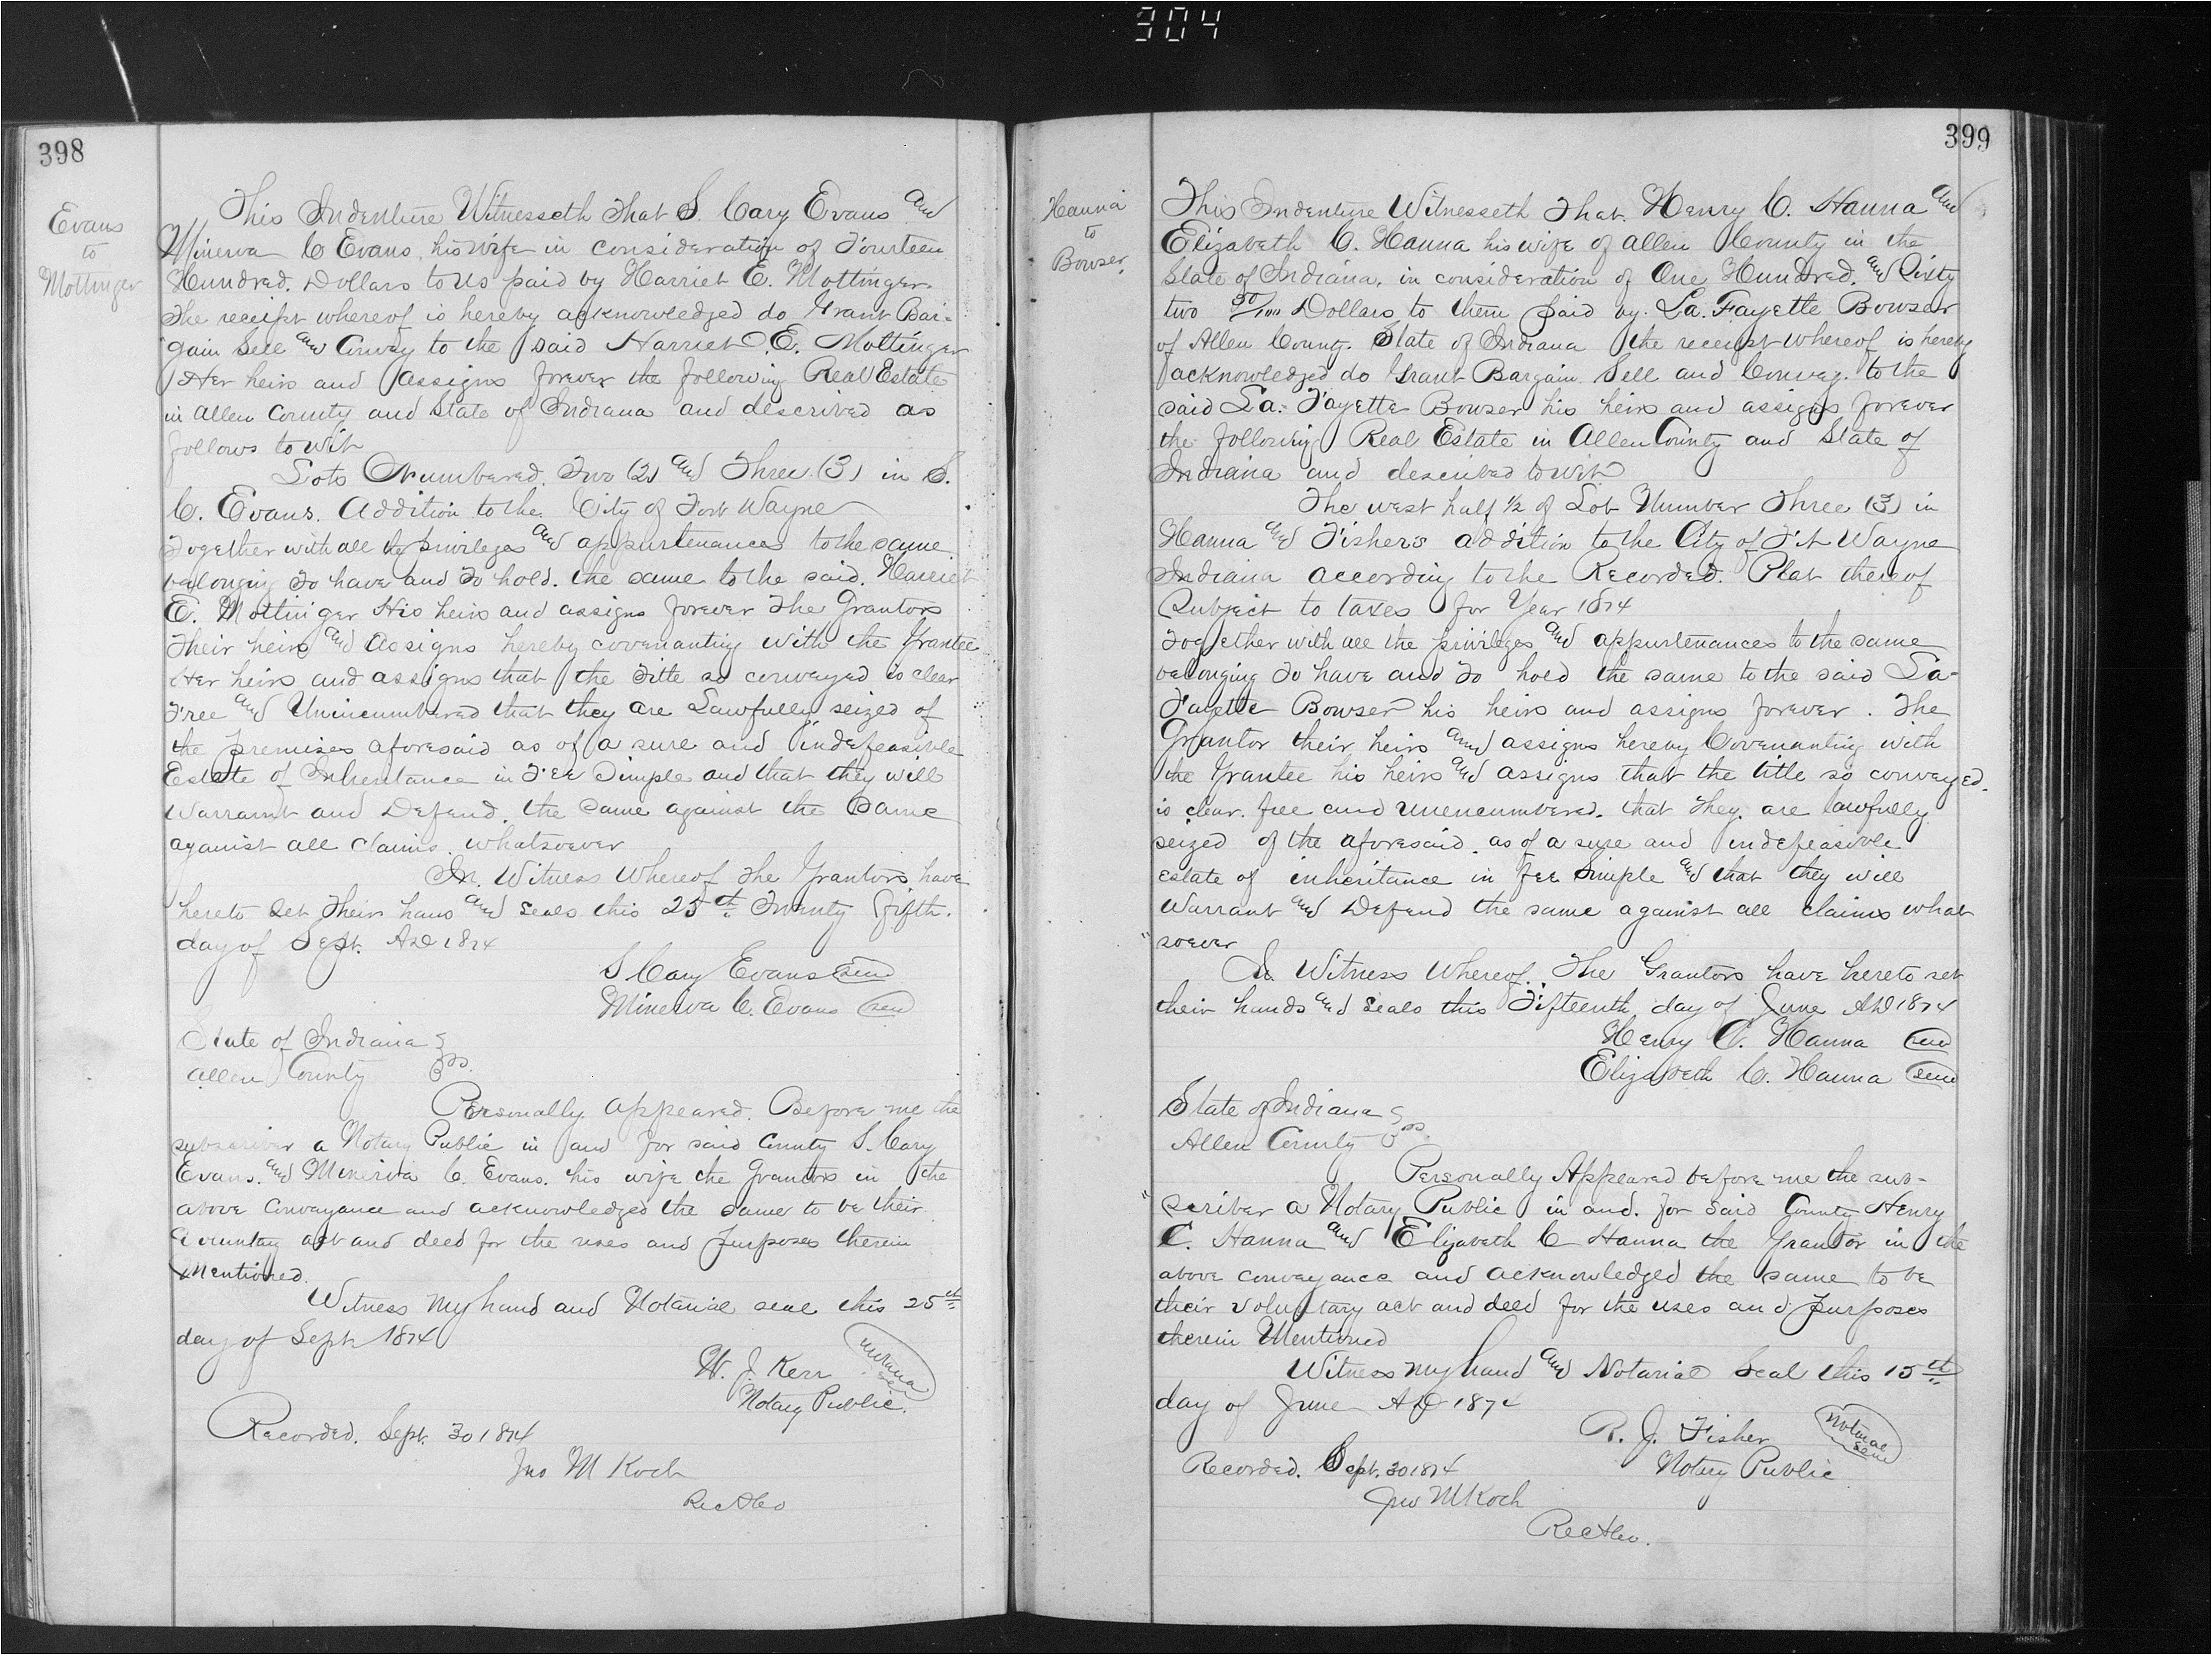 304
398
Evans
to
Mottinger
This Indenture Witnesseth That S. Cary Evans and
Minerva C Evans his wife in consideration of Fourteen
Hundred. Dollars to us paid by Harriet E. Mottinger.
The receipt whereof is hereby acknowledged do Grant Bar-
"gain Sell and Convey to the said Harriet E. Mottinger
Her heirs and assigns forever the following Real Estate
in Allen County and State of Indiana and described as
follows to wit
Lots Numbered. Two (2) and Three (3) in S.
C. Evans. Addition to the City of Fort Wayne
Together with all the privileges and appurtenances to the same
belonging To have and To hold. the same to the said. Harriet
E. Mottinger His heirs and assigns forever The Grantors
Their heirs and assigns hereby covenanting with the Grantee
Her heirs and assigns that the Title so conveyed is clear
Free and Unincumbered that they are Lawfully seized of
the premises aforesaid as of a sure and indefeasible
Estate of Inheritance in Fee Simple and that they will
Warrant and Defend. the same against the Same
against all claims whatsoever
In. Witness Whereof The Grantors have
hereto set Their hans and seals this 25th Twenty fifth.
day of Sept. AD 1874
S Cary Evans Seal
Minerva C. Evans Seal
State of Indiana
Allen County ss.
Personally appeared. Before me the
subscriber a Notary Public in and for said County S. Cary
Evans. and Minerva C. Evans. his wife the Grantors in the
above Conveyance and acknowledged the same to be their
act and deed for the uses and Purposes therein
Mentioned.
Witness my hand and Notarial seal this 25th
day of Sept 1874
W. J. Kerr
Notarial Seal
Notary Public.
Recorded. Sept. 30 1874
Jno M Koch
Rec
399
Hanna
to
Bowser
This Indenture Witnesseth That. Henry C. Hanna and
Elizabeth C. Hanna his wife of Allen County in the
State of Indiana, in consideration of One Hundred. and Sixty
two 50/100 Dollars to them paid by La. Fayette Bowser
of Allen County. State of Indiana the receipt whereof is hereby
acknowledged do Grant Bargain. Sell and Convey. to the
said La- Fayette Bowser his heirs and assigns forever
the following Real Estate in Allen County and State of
Indiana and described to wit
The west half 1/2 of Lot Number Three (3) in
Hanna and Fisher's addition to the City of Ft Wayne
Indiana according to the Recorded. Plat thereof
Subject to taxes for Year 1874
Together with all the privileges and appurtenances to the same
belonging To have and To hold the same to the said La-
Fayette Bowser his heirs and assigns forever. The
Grantor their heirs and assigns hereby Covenanting with
the Grantee his heirs and assigns that the title so conveyed.
is clear. free and unencumbered. that They. are lawfully
seized of the aforesaid. as of a sure and indefeasible
estate of inheritance in fee simple and that they will
Warrant and Defend the same against all claims what
"soever
In Witness Whereof. The Grantors have hereto set
their hands and seals this Fifteenth day of June AD 1874
Henry C. Hanna Seal
Elizabeth C. Hanna Seal
State of Indiana
Allen County ss.
Personally Appeared before me the sub-
"scriber a Notary Public in and. for said County Henry
C. Hanna and Elizabeth C Hanna the Grantor in the
above conveyance and acknowledged the same to be
their voluntary act and deed for the uses and purposes
therein Mentioned
Witness my hand and Notarial Seal this 15th
day of June AD 1874
R. J. Fisher
Notarial Seal
Notary Public
Recorded. Sept. 30 1874
Jno M Koch
Rec